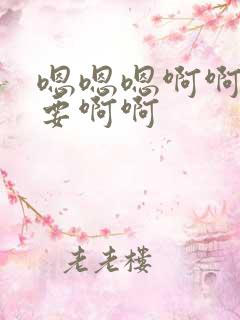 嗯嗯嗯啊啊
要啊啊
老老楼